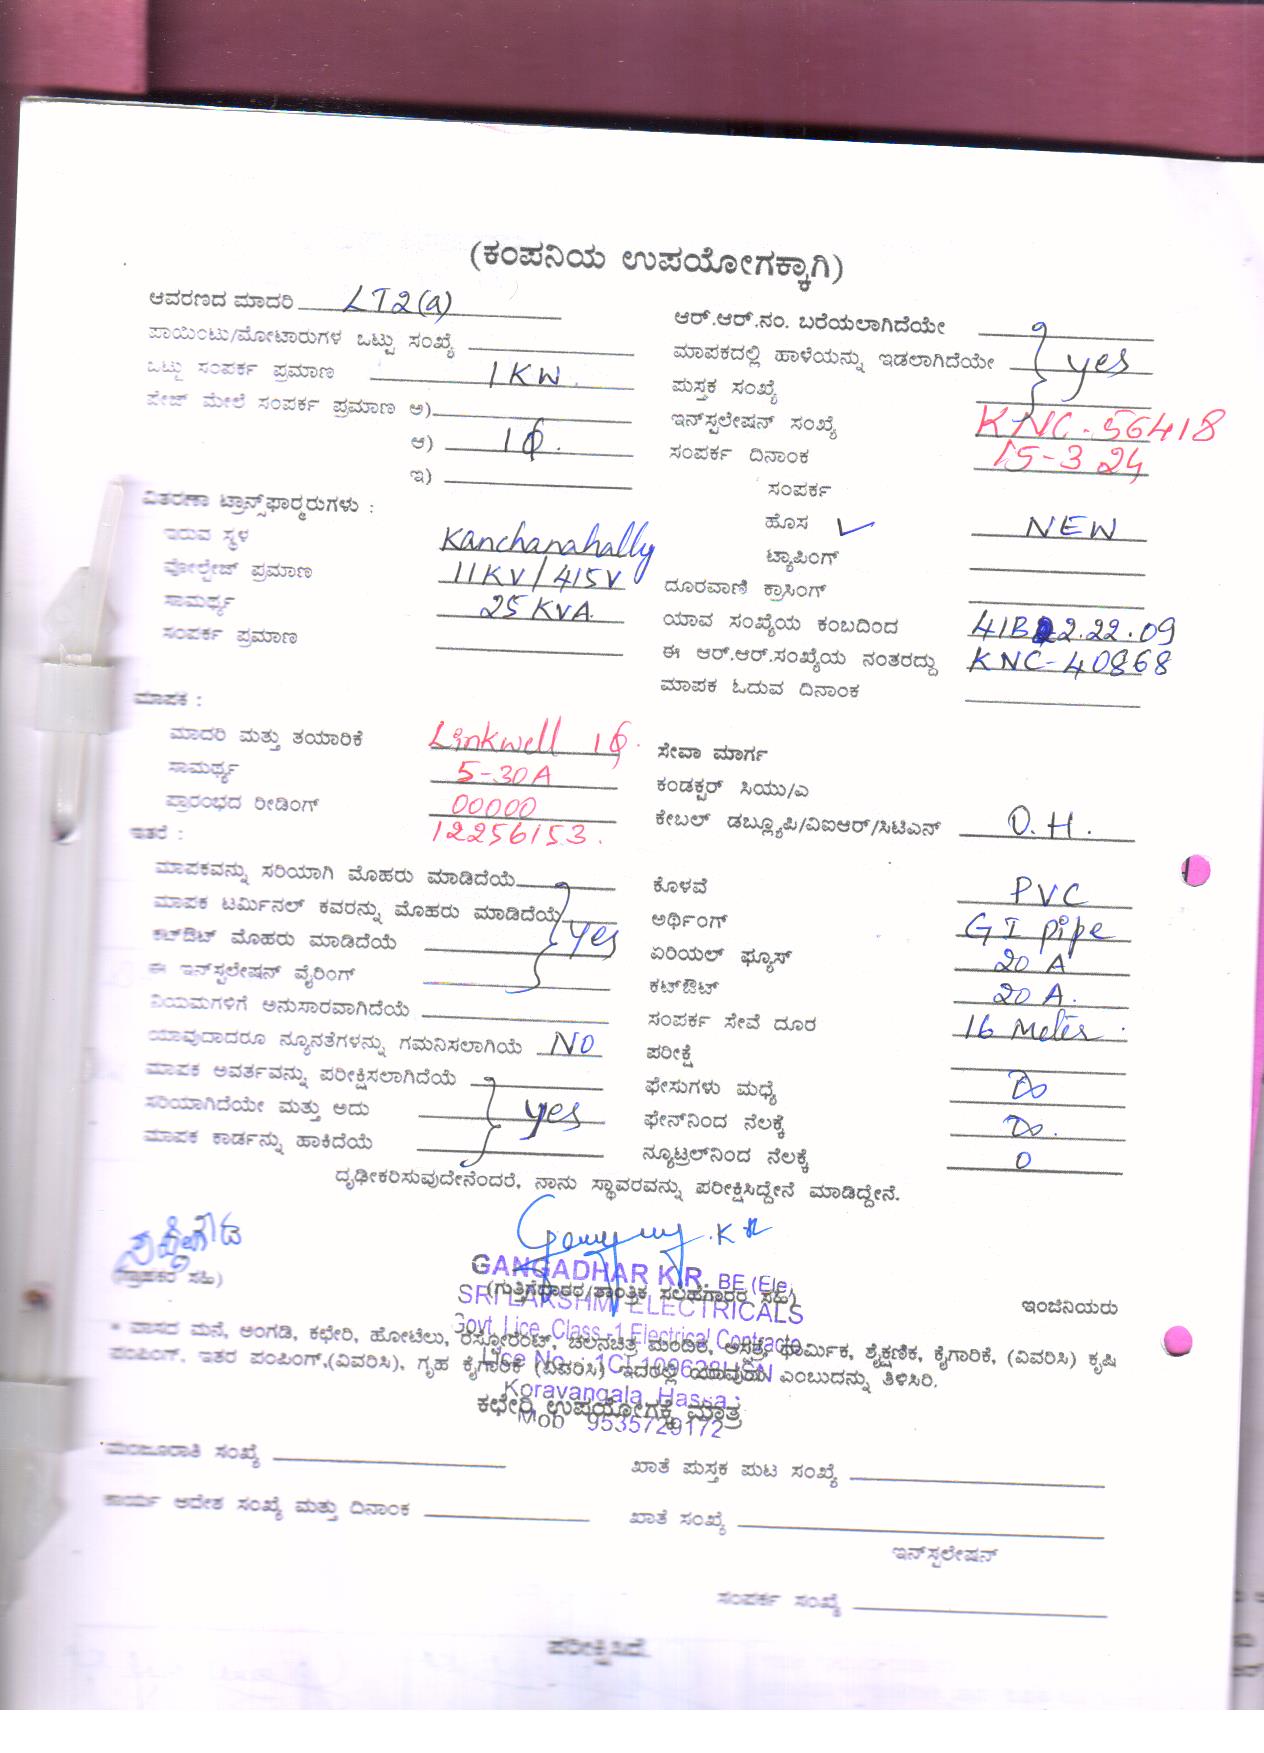 (ಕಂಪನಿಯ ಉಪಯೋಗಕ್ಕಾಗಿ)
ಆವರಣದ ಮಾದರಿ LT2(a)
ಪಾಯಿಂಟು/ಮೋಟಾರುಗಳ ಒಟ್ಟು ಸಂಖ್ಯೆ
ಒಟ್ಟು ಸಂಪರ್ಕ ಪ್ರಮಾಣ 1KW.
ಪೇಜ್ ಮೇಲೆ ಸಂಪರ್ಕ ಪ್ರಮಾಣ ಅ)
ಆ) 1ϕ.
ಇ)
ವಿತರಣಾ ಟ್ರಾನ್ಸ್‌ಫಾರ್ಮರುಗಳು :
ಇರುವ ಸ್ಥಳ Kanchanahally
ವೋಲ್ಟೇಜ್ ಪ್ರಮಾಣ 11KV/415V
ಸಾಮರ್ಥ್ಯ 25 KVA.
ಸಂಪರ್ಕ ಪ್ರಮಾಣ
ಮಾಪಕ :
ಮಾದರಿ ಮತ್ತು ತಯಾರಿಕೆ Linkwell 1ϕ.
ಸಾಮರ್ಥ್ಯ 5-30A
ಪ್ರಾರಂಭದ ರೀಡಿಂಗ್ 00000
ಇತರೆ : 12256153.
ಮಾಪಕವನ್ನು ಸರಿಯಾಗಿ ಮೊಹರು ಮಾಡಿದೆಯೆ
ಮಾಪಕ ಟರ್ಮಿನಲ್ ಕವರನ್ನು ಮೊಹರು ಮಾಡಿದೆಯೆ
ಕಟ್‌ಔಟ್ ಮೊಹರು ಮಾಡಿದೆಯೆ yes
ಈ ಇನ್‌ಸ್ಟಲೇಷನ್ ವೈರಿಂಗ್
ನಿಯಮಗಳಿಗೆ ಅನುಸಾರವಾಗಿದೆಯೆ
ಯಾವುದಾದರೂ ನ್ಯೂನತೆಗಳನ್ನು ಗಮನಿಸಲಾಗಿಯೆ NO
ಮಾಪಕ ಅವರ್ತವನ್ನು ಪರೀಕ್ಷಿಸಲಾಗಿದೆಯೆ
ಸರಿಯಾಗಿದೆಯೇ ಮತ್ತು ಅದು yes
ಮಾಪಕ ಕಾರ್ಡನ್ನು ಹಾಕಿದೆಯೆ
ಆರ್.ಆರ್.ನಂ. ಬರೆಯಲಾಗಿದೆಯೇ
ಮಾಪಕದಲ್ಲಿ ಹಾಳೆಯನ್ನು ಇಡಲಾಗಿದೆಯೇ yes
ಪುಸ್ತಕ ಸಂಖ್ಯೆ
ಇನ್‌ಸ್ಟಲೇಷನ್ ಸಂಖ್ಯೆ KNC-56418
ಸಂಪರ್ಕ ದಿನಾಂಕ 15-3 24
ಸಂಪರ್ಕ
ಹೊಸ ✓ NEW
ಟ್ಯಾಪಿಂಗ್
ದೂರವಾಣಿ ಕ್ರಾಸಿಂಗ್
ಯಾವ ಸಂಖ್ಯೆಯ ಕಂಬದಿಂದ
ಈ ಆರ್.ಆರ್.ಸಂಖ್ಯೆಯ ನಂತರದ್ದು KNC-40868
ಮಾಪಕ ಓದುವ ದಿನಾಂಕ
ಸೇವಾ ಮಾರ್ಗ
ಕಂಡಕ್ಟರ್ ಸಿಯು/ಎ
ಕೇಬಲ್ ಡಬ್ಲ್ಯೂಪಿ/ವಿಐಆರ್/ಸಿಟಿಎಸ್ O.H.
ಕೊಳವೆ PVC
ಅರ್ಥಿಂಗ್ GI pipe
ಏರಿಯಲ್ ಫ್ಯೂಸ್ 20 A
ಕಟ್‌ಔಟ್ 20 A.
ಸಂಪರ್ಕ ಸೇವೆ ದೂರ 16 Meter.
ಪರೀಕ್ಷೆ
ಫೇಸುಗಳು ಮಧ್ಯೆ ∞
ಫೇಸ್‌ನಿಂದ ನೆಲಕ್ಕೆ ∞.
ನ್ಯೂಟ್ರಲ್‌ನಿಂದ ನೆಲಕ್ಕೆ 0
ದೃಢೀಕರಿಸುವುದೇನೆಂದರೆ, ನಾನು ಸ್ಥಾವರವನ್ನು ಪರೀಕ್ಷಿಸಿದ್ದೇನೆ ಮಾಡಿದ್ದೇನೆ.
(ಗ್ರಾಹಕರ ಸಹಿ)
GANGADHAR K.R. BE (Ele
(ಗುತ್ತಿಗೆದಾರರ/ತಾಂತ್ರಿಕ ಸಲಹೆಗಾರರ ಸಹಿ)
ಇಂಜಿನಿಯರು
SRI LAKSHMI ELECTRICALS
Govt. Lice. Class -1 Electrical Contracto
* ವಾಸದ ಮನೆ, ಅಂಗಡಿ, ಕಛೇರಿ, ಹೋಟೆಲು, ರೆಸ್ಟೋರೆಂಟ್, ಚಲನಚಿತ್ರ ಮಂದಿರ, ಆಸ್ಪತ್ರೆ, ಧಾರ್ಮಿಕ, ಶೈಕ್ಷಣಿಕ, ಕೈಗಾರಿಕೆ, (ವಿವರಿಸಿ) ಕೃಷಿ
ಪಂಪಿಂಗ್, ಇತರ ಪಂಪಿಂಗ್,(ವಿವರಿಸಿ), ಗೃಹ ಕೈಗಾರಿಕೆ (ವಿವರಿಸಿ) ಇದರಲ್ಲಿ ಯಾವುದು ಎಂಬುದನ್ನು ತಿಳಿಸಿರಿ.
Koravangala, Hassa
ಕಛೇರಿ ಉಪಯೋಗಕ್ಕೆ ಮಾತ್ರ
Mob 9535729172
ಮಂಜೂರಾತಿ ಸಂಖ್ಯೆ
ಖಾತೆ ಪುಸ್ತಕ ಪುಟ ಸಂಖ್ಯೆ
ಕಾರ್ಯ ಆದೇಶ ಸಂಖ್ಯೆ ಮತ್ತು ದಿನಾಂಕ
ಖಾತೆ ಸಂಖ್ಯೆ
ಇನ್‌ಸ್ಟಲೇಷನ್
ಸಂಪರ್ಕ ಸಂಖ್ಯೆ
ಪರೀಕ್ಷಿಸಿದೆ.